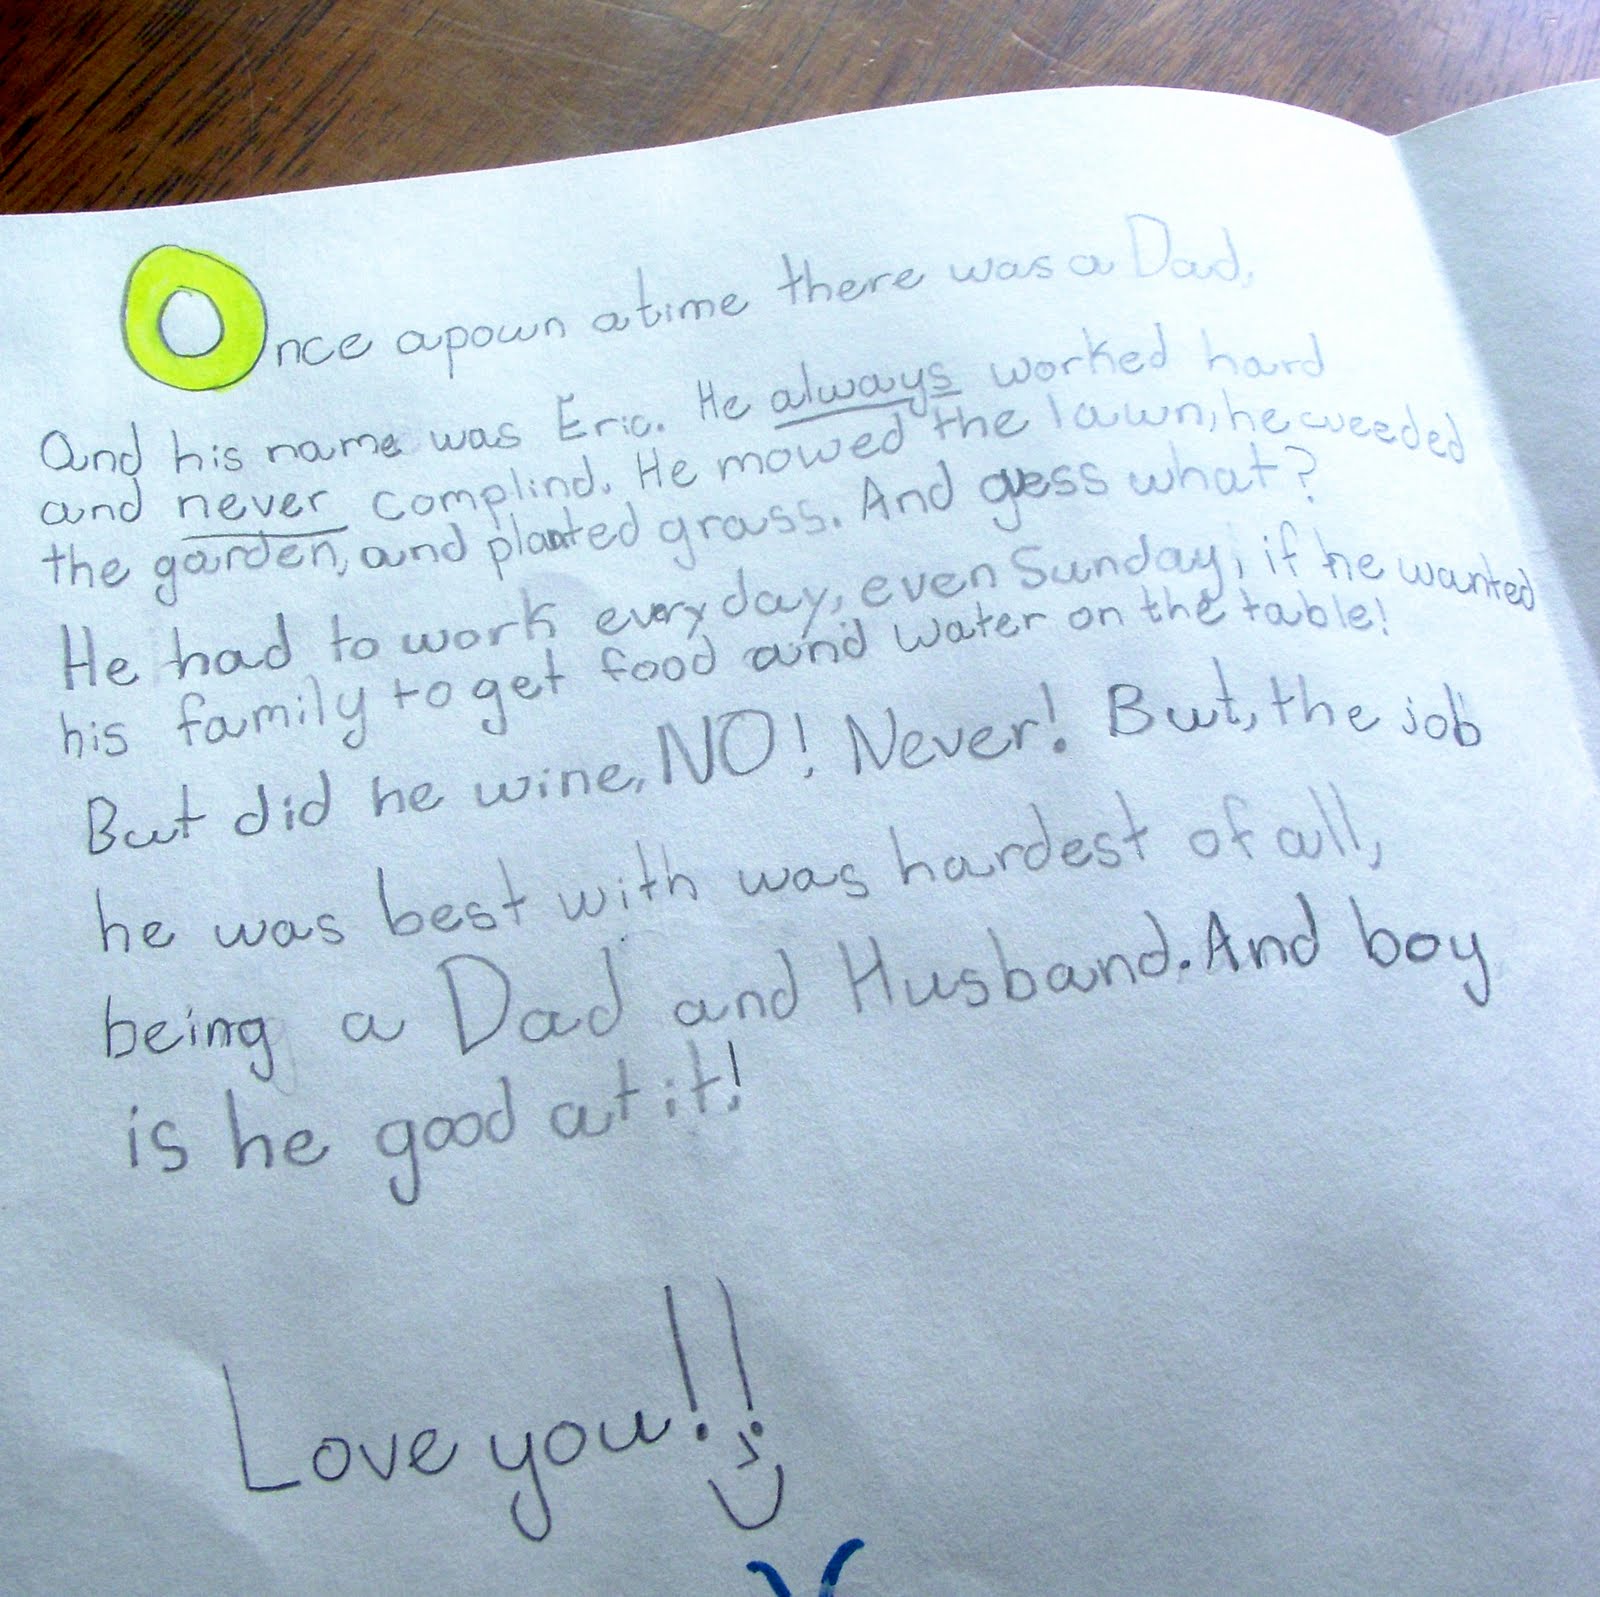 Once apown a time there was a Dad,
And his name was Eric. He always worked hard
and never complind. He mowed the lawn, he weeded
the garden, and planted grass. And gess what?
He had to work everyday, even Sunday, if he wanted
his family to get food and water on the table!
But did he wine, NO! Never! But, the job
he was best with was hardest of all,
being a Dad and Husband. And boy
is he good at it!
Love you!!